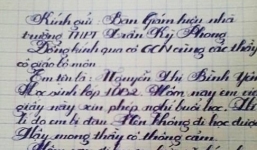 Kính gửi: Ban Giám hiệu nhà
trường THPT Trần Kỳ Phong
Đồng kính qua cô GCN cùng các thầy
cô giáo bộ môn
Em tên là: Nguyễn Thị Bình Yên
Học sinh lớp 10C2. Hôm nay em viết
giấy này xin phép nghỉ buổi học. Lí
lí do em bị đau. Nên không đi học được
Mong thầy cô thông cảm.